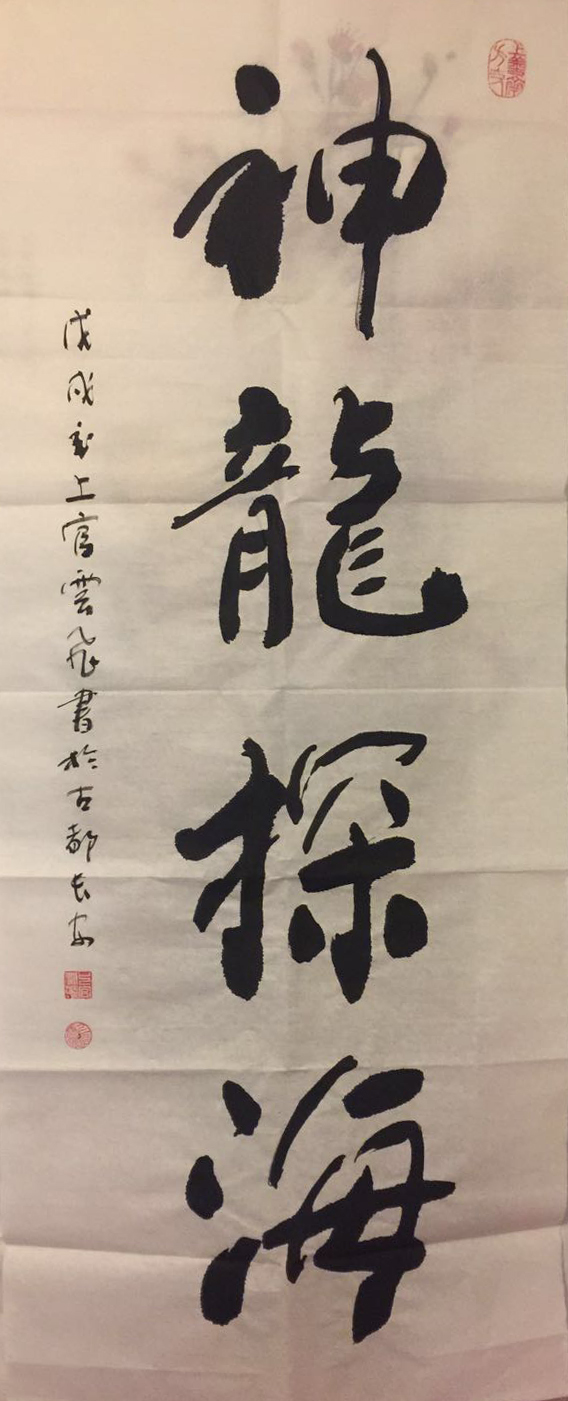 神龍探海
戊戌夏上官雲飛書於古都長安